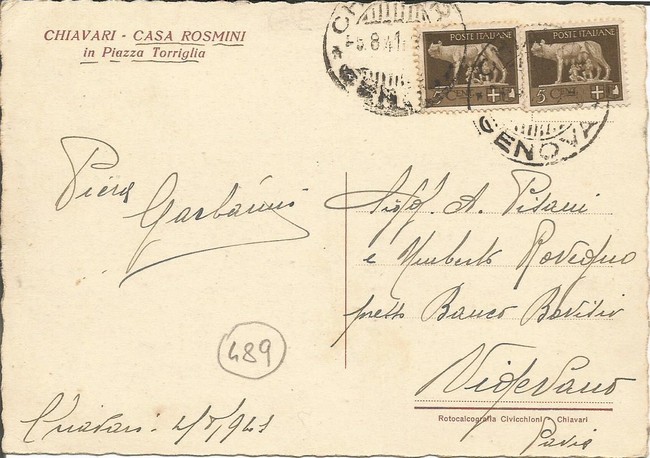 CHIAVARI - CASA ROSMINI
in Piazza Torriglia
-5.8.41
GENOVA
POSTE ITALIANE
5 CENT
POSTE ITALIANE
5 CENT
Piera
Garbarini
Sigg. A. Pisani
e Umberto Rovegno
presso Banco
Vigevano
Pavia
489
Chiavari 1941
Rotocalcografia Civicchioni - Chiavari